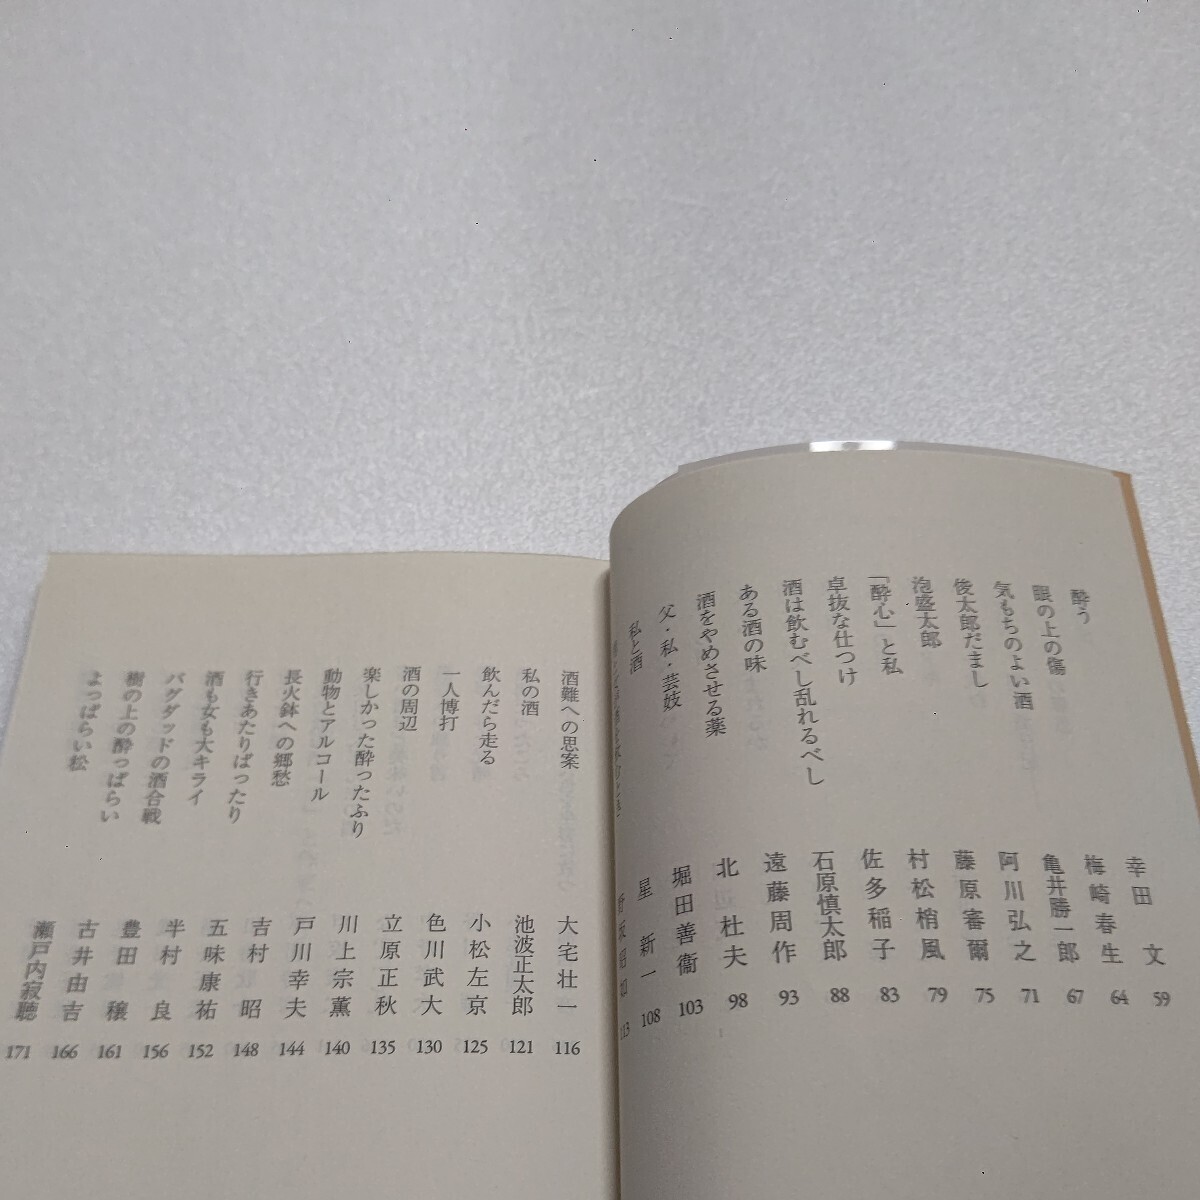 酔う 幸田 文 59
眼の上の傷 梅崎春生 64
気もちのよい酒 亀井勝一郎 67
後太郎だまし 阿川弘之 71
泡盛太郎 藤原審爾 75
「酔心」と私 村松梢風 79
卓抜な仕つけ 佐多稲子 83
酒は飲むべし乱れるべし 石原慎太郎 88
ある酒の味 遠藤周作 93
酒をやめさせる薬 北 杜夫 98
父・私・芸妓 堀田善衞 103
私と酒 星 新一 108
野坂昭如 113
酒難への思案 大宅壮一 116
私の酒 池波正太郎 121
飲んだら走る 小松左京 125
一人博打 色川武大 130
酒の周辺 立原正秋 135
楽しかった酔ったふり 川上宗薫 140
動物とアルコール 戸川幸夫 144
長火鉢への郷愁 吉村 昭 148
行きあたりばったり 五味康祐 152
酒も女も大キライ 半村 良 156
バグダッドの酒合戦 豊田 穣 161
樹の上の酔っぱらい 古井由吉 166
よっぱらい松 瀬戸内寂聴 171